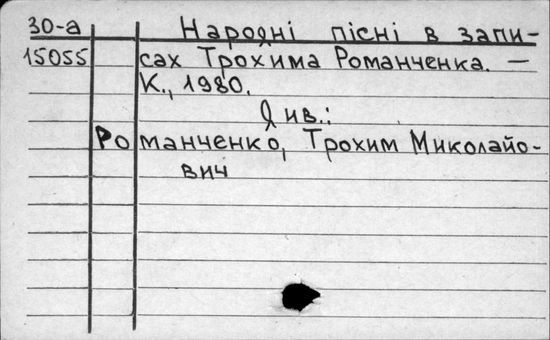 30-а Народні пісні в запи-
15055 сах Трохима Романченка. —
К., 1980.
Див.:
Романченко, Трохим Миколайо-
вич